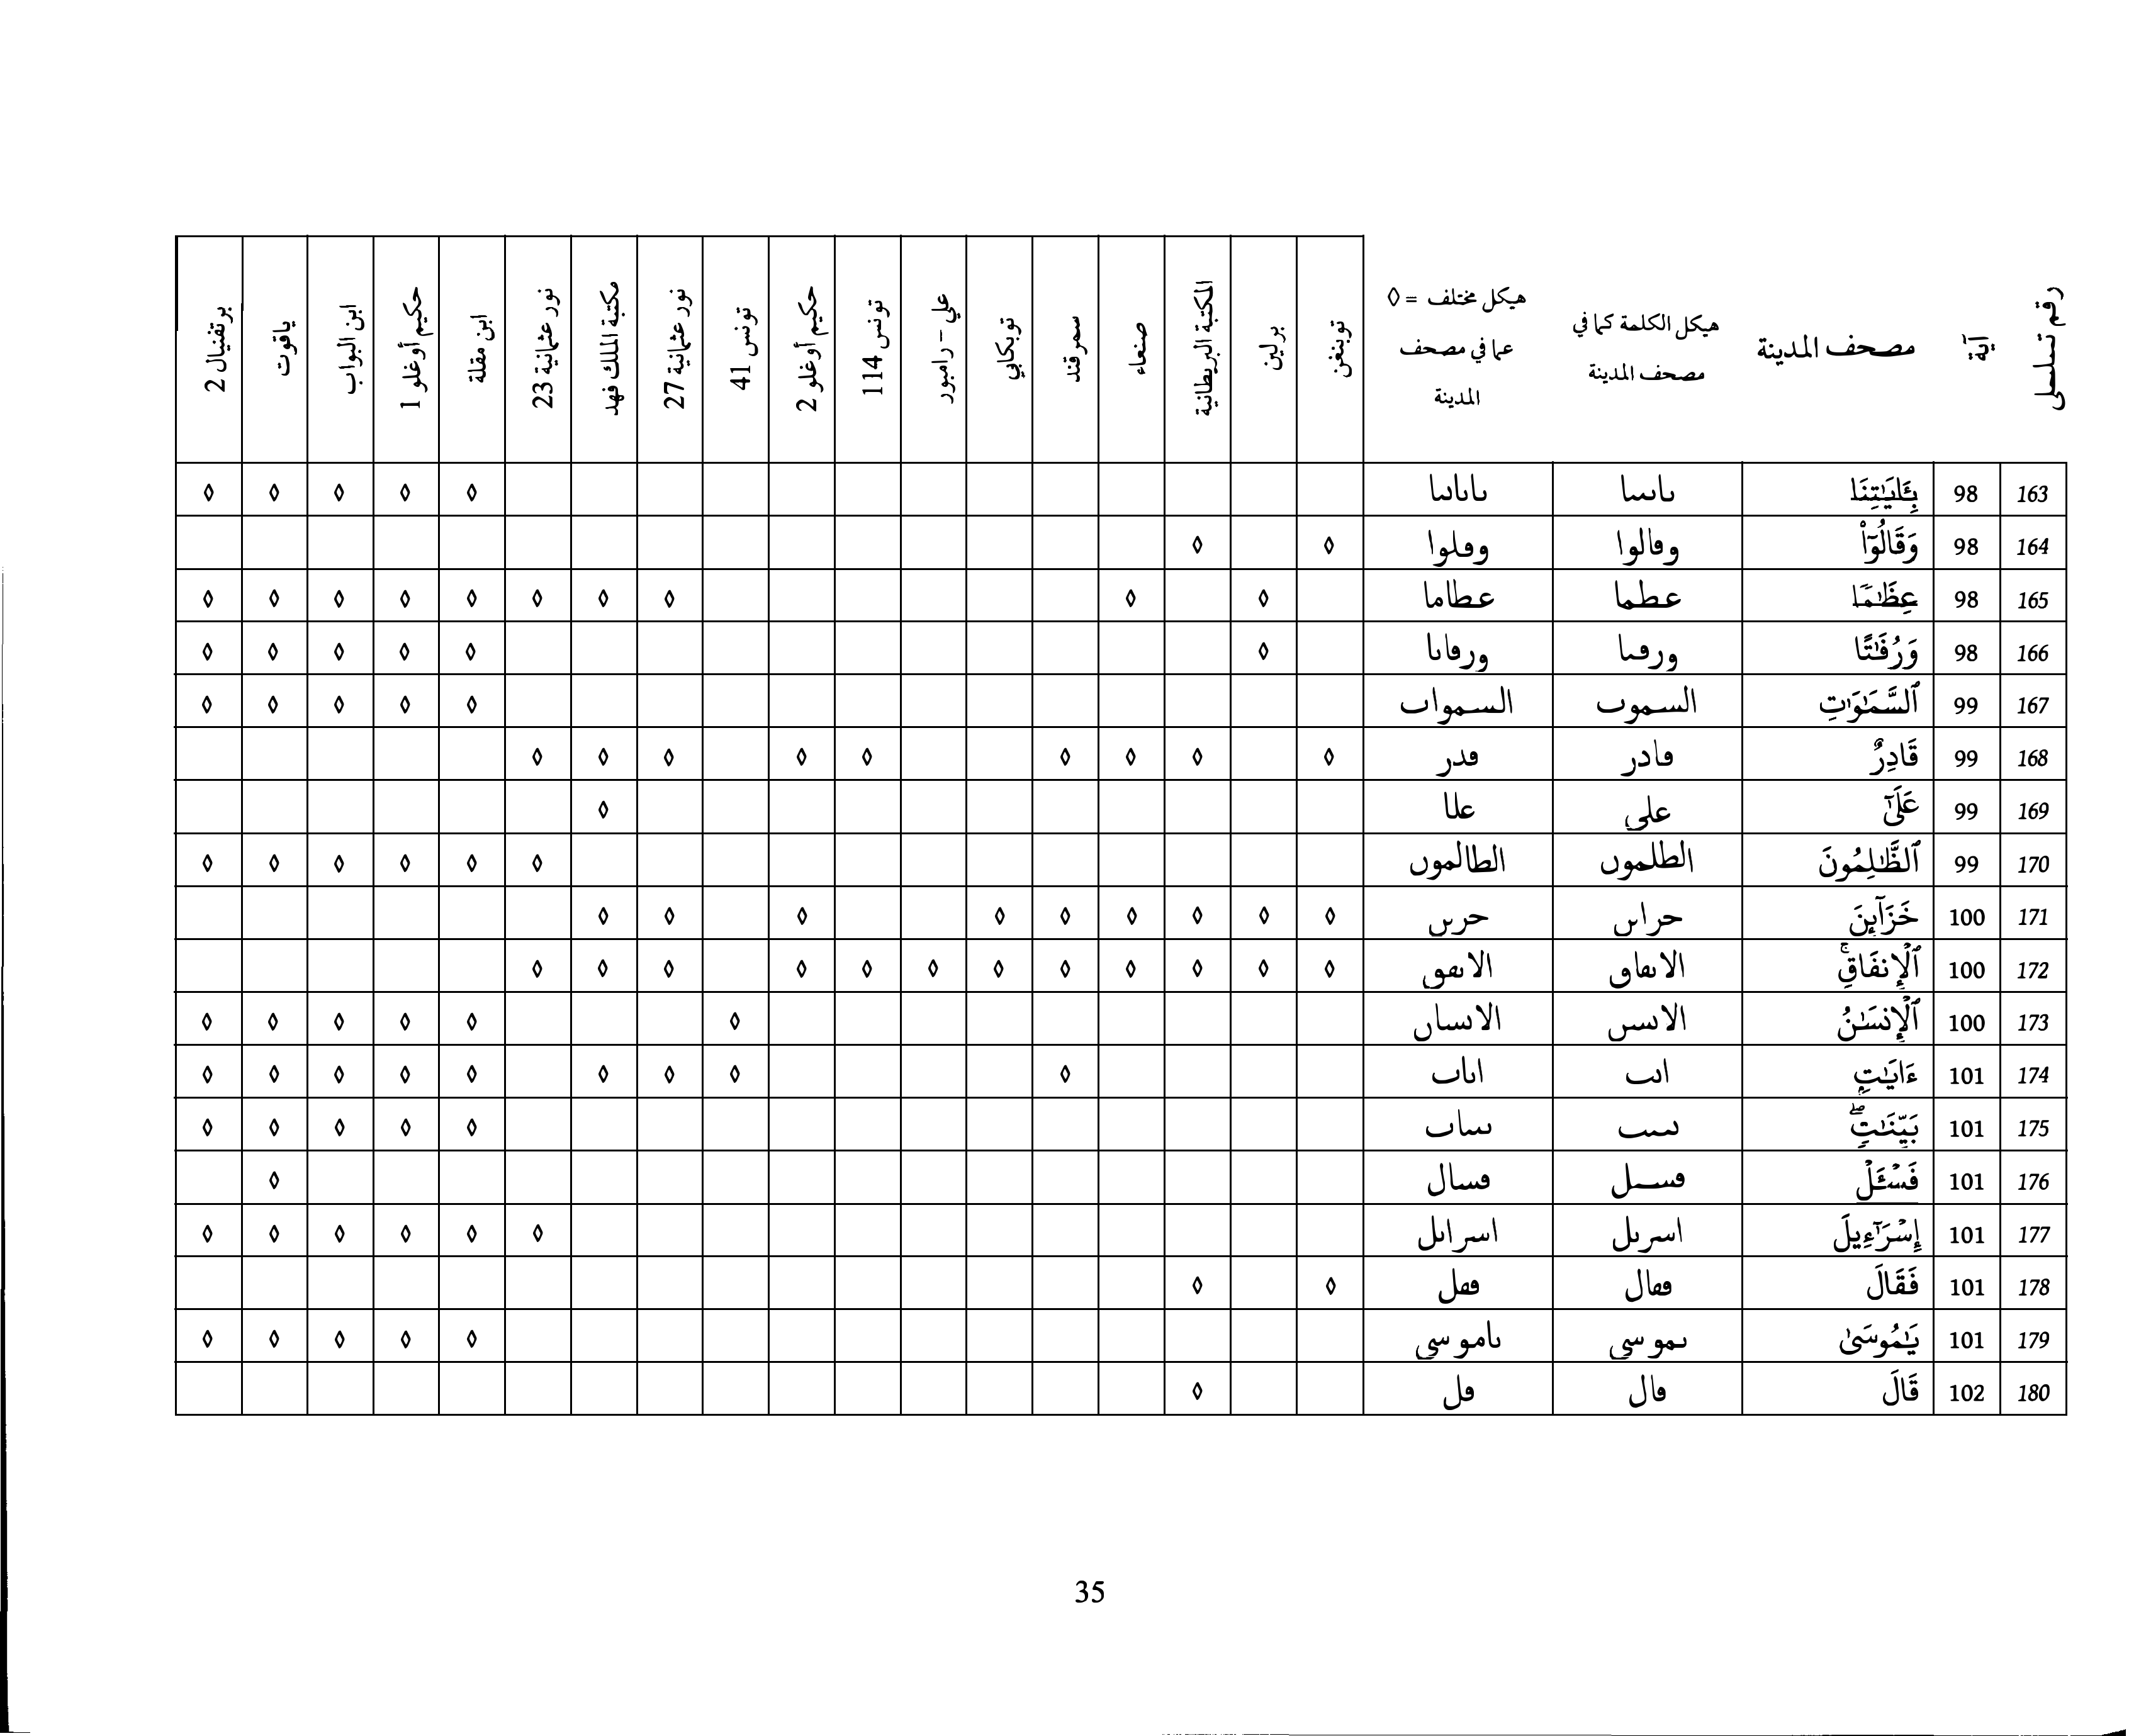 رقم تسلسلي آية مصحف المدينة هيكل الكلمة كما في مصحف المدينة هيكل مختلف = ◊ عما في مصحف المدينة توبنغن برلين المكتبة البريطانية صنعاء سمرقند توبكابي علي - رامبور تونس 114 حكيم أوغلو 2 تونس 41 نور عثمانية 27 مكتبة الملك فهد نور عثمانية 23 ابن مقلة حكيم أوغلو 1 ابن البواب ياقوت برتفنيال 2
163 98 بِـَٔايَٰتِنَا ٮاٮٮٮا ٮاٮاٮٮا ◊ ◊ ◊ ◊ ◊
164 98 وَقَالُوٓا۟ وڡالوا وڡلوا ◊ ◊
165 98 عِظَٰمًا عطما عطاما ◊ ◊ ◊ ◊ ◊ ◊ ◊ ◊ ◊ ◊
166 98 وَرُفَٰتًا ورڡٮا ورڡاٮا ◊ ◊ ◊ ◊ ◊ ◊
167 99 ٱلسَّمَٰوَٰتِ السموٮ السمواٮ ◊ ◊ ◊ ◊ ◊
168 99 قَادِرٌ ڡادر ڡدر ◊ ◊ ◊ ◊ ◊ ◊ ◊ ◊ ◊
169 99 عَلَىٰٓ على علا ◊
170 99 ٱلظَّٰلِمُونَ الطلموں الطالموں ◊ ◊ ◊ ◊ ◊ ◊
171 100 خَزَآئِنَ حراٮں حرٮں ◊ ◊ ◊ ◊ ◊ ◊ ◊ ◊ ◊
172 100 ٱلْإِنفَاقِۚ الاٮڡاٯ الاٮڡٯ ◊ ◊ ◊ ◊ ◊ ◊ ◊ ◊ ◊ ◊ ◊ ◊
173 100 ٱلْإِنسَٰنُ الاٮسں الاٮساں ◊ ◊ ◊ ◊ ◊ ◊
174 101 ءَايَٰتٍۭ اٮٮ اٮاٮ ◊ ◊ ◊ ◊ ◊ ◊ ◊ ◊ ◊
175 101 بَيِّنَٰتٍۖ ٮٮٮٮ ٮٮٮاٮ ◊ ◊ ◊ ◊ ◊
176 101 فَسْـَٔلْ ڡسل ڡسال ◊
177 101 إِسْرَٰٓءِيلَ اسرٮل اسراٮل ◊ ◊ ◊ ◊ ◊ ◊
178 101 فَقَالَ ڡڡال ڡڡل ◊ ◊
179 101 يَٰمُوسَىٰ ٮموسى ٮاموسى ◊ ◊ ◊ ◊ ◊
180 102 قَالَ ڡال ڡل ◊
35